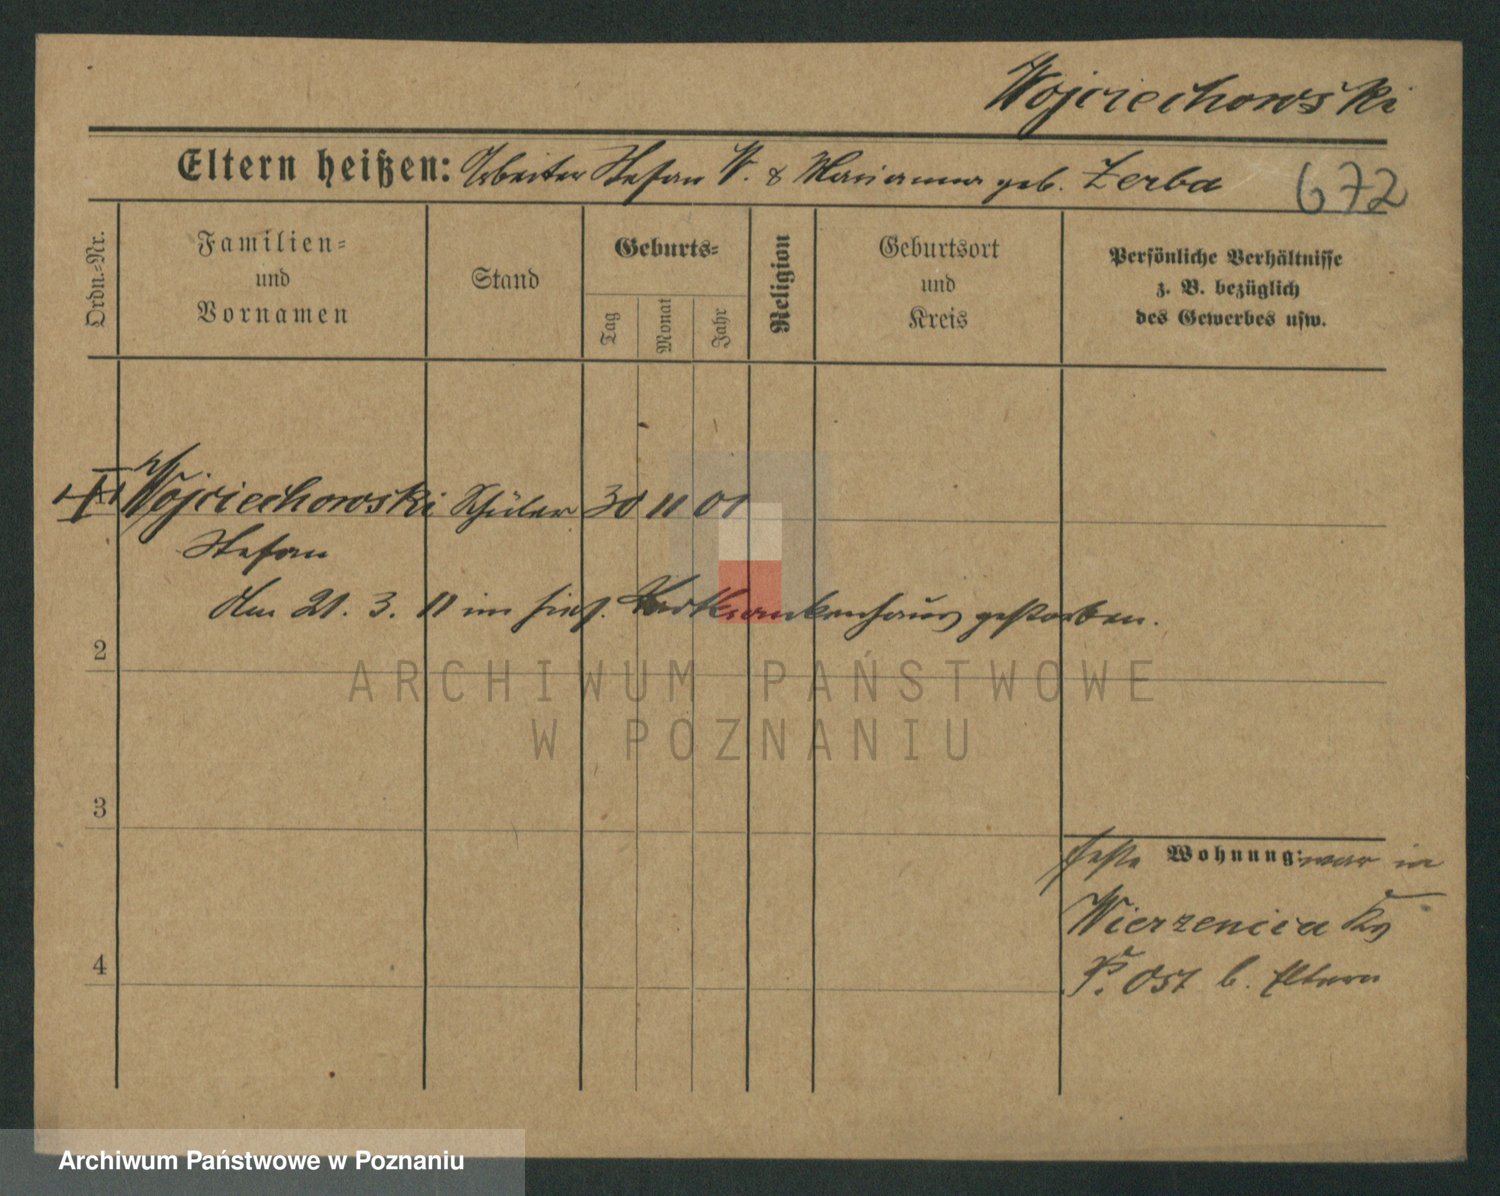 Wojciechowski
Eltern heißen: Arbeiter Stefan W. & Marianna geb. Zerba
672
Ordn.-Nr.
Familien-
und
Vornamen
Stand
Geburts-
Tag
Monat
Jahr
Religion
Geburtsort
und
Kreis
Persönliche Verhältnisse
z. B. bezüglich
des Gewerbes usw.
Wojciechowski Schüler 30 11 01
Stefan
Am 21. 3. 11 im hies. gestorben.
2
ARCHIWUM PAŃSTWOWE
W POZNANIU
3
feste Wohnung: war in
Wierzenica Krs
P. Ost b. Eltern
4
Archiwum Państwowe w Poznaniu